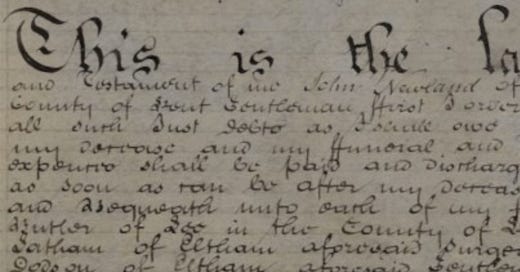 This is the la
and Testament of me John Newland of
County of Kent Gentleman ffirst I order
all such Just debts as I shall owe
my decease and my ffuneral and
expences shall be paid and discharg
as soon as can be after my deceas
and Bequeath unto each of my
Butler of Lee in the County of
Latham of Eltham aforesaid Surge
Dodson of Eltham aforesaid Gentle